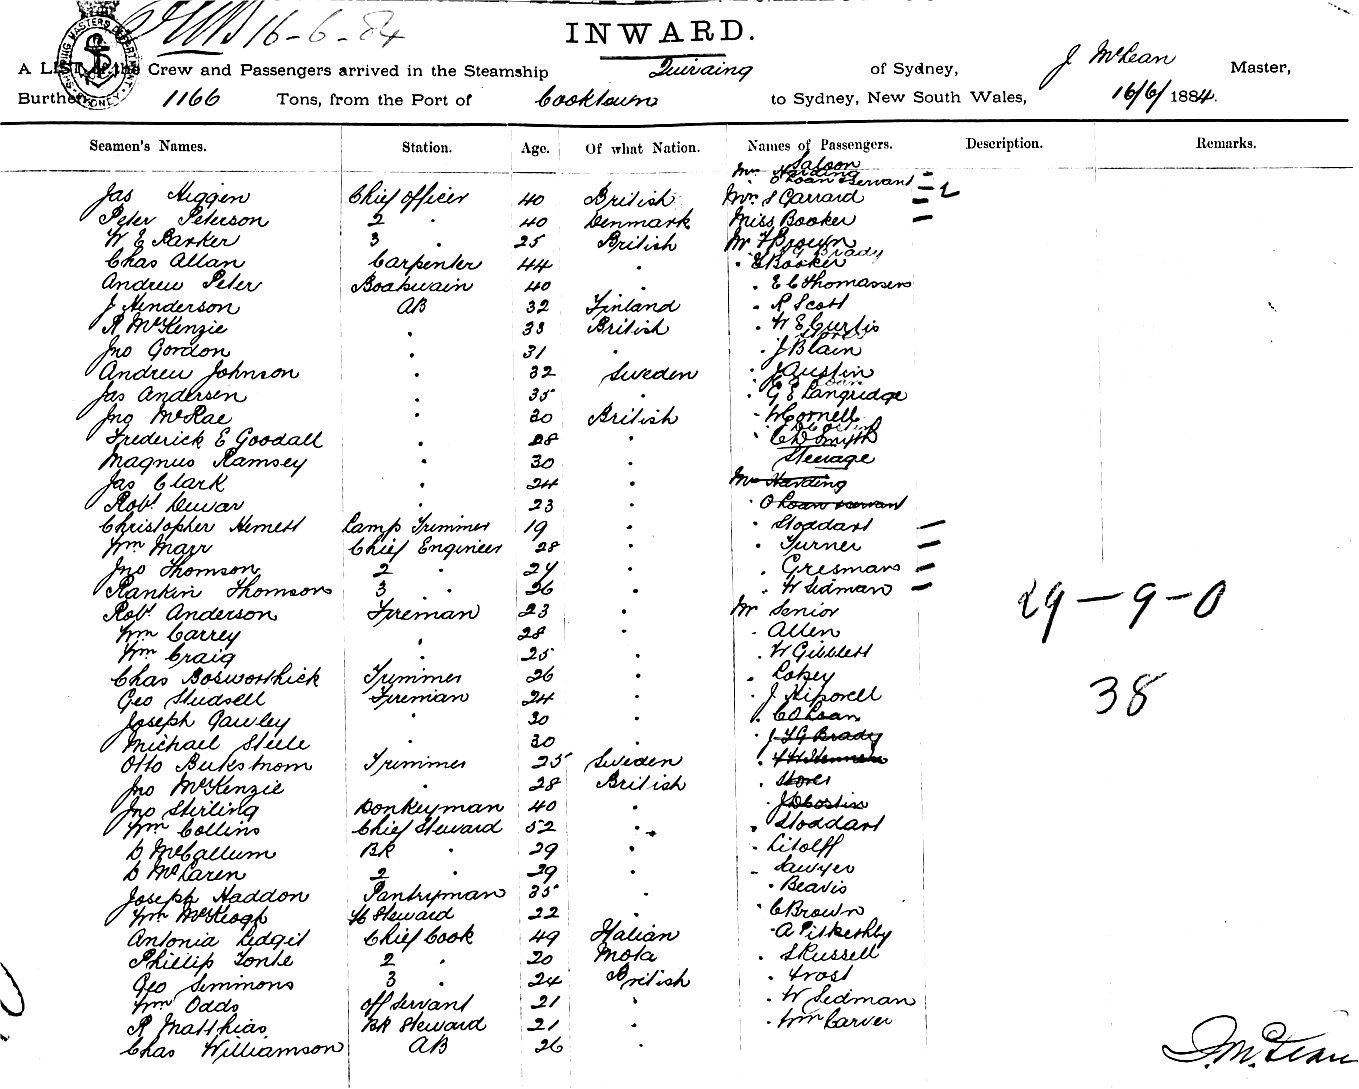 16-6-84
SHIPPING MASTERS DEPARTMENT SYDNEY
INWARD.
A LIST of the Crew and Passengers arrived in the Steamship Quiraing of Sydney, J McLean Master,
Burthen 1166 Tons, from the Port of Cooktown to Sydney, New South Wales, 16/6/1884.
Seamen's Names. Station. Age. Of what Nation. Names of Passengers. Description. Remarks.
Saloon
Mr Harding
" O Loan & Servant - 2
Jas Higgen Chief Officer 40 British Mrs S Garrard -
Peter Peterson 2 " 40 Denmark Miss Booker -
W E Parker 3 " 25 British Mr F Brown
Brady
Chas Allan Carpenter 44 " " E Booker
Andrew Peter Boatswain 40 " E C Thomassens
J Henderson AB 32 Finland " R Scott
R McKenzie " 33 British " W E Curtis
Jno Gordon " 31 " " J Blain
Andrew Johnson " 32 Sweden " J Austin
Jas Andersen " 35 " " G E Langridge
Jno McRae " 30 British " W Cornell
Frederick E Goodall " 28 " " C D Smyth
Magnus Ramsey " 30 " Steerage
Jas Clark " 24 " Mr Harding
Robt Dewar " 23 " " O Loan servant
Christopher Hemett Lamp Trimmer 19 " " Stoddart -
Wm Marr Chief Engineer 28 " " Turner -
Jno Thomson 2 " 27 " " Gresmans -
Rankin Thomson 3 " 26 " " W Sedman -
Robt Anderson Fireman 23 " Mr Senior
29-9-0
Wm Carrey " 28 " " Allen
Wm Craig " 25 " " W Giblett
Chas Bosworthick Trimmer 26 " "
38
Geo Studsell Fireman 24 " " J Hipwell
Joseph Gawley " 30 " " C O Loan
Michael Steele " 30 " " J F G Brady
Otto Bukstrom Trimmer 25 Sweden
Jno McKenzie " 28 British
Jno Stirling Donkeyman 40 " " J D Costin
Wm Collins Chief Steward 52 " " Stoddart
D McCallum BR " 29 " " Litolff
D McLaren 2 " 29 " " Sawyer
Joseph Haddon Pantryman 35 " " Beavis
Wm McKeogh Steward 22 " " C Brown
Antonia Ledgit Chief Cook 49 Italian " A Pitkethly
Phillip Tonte 2 " 20 Mota " S Russell
Geo Simmons 3 " 24 British " Frost
Wm Odds Off Servant 21 " " W Sedman
R Matthias BR Steward 21 " " Wm Carver
Chas Williamson AB 26
J. McLean